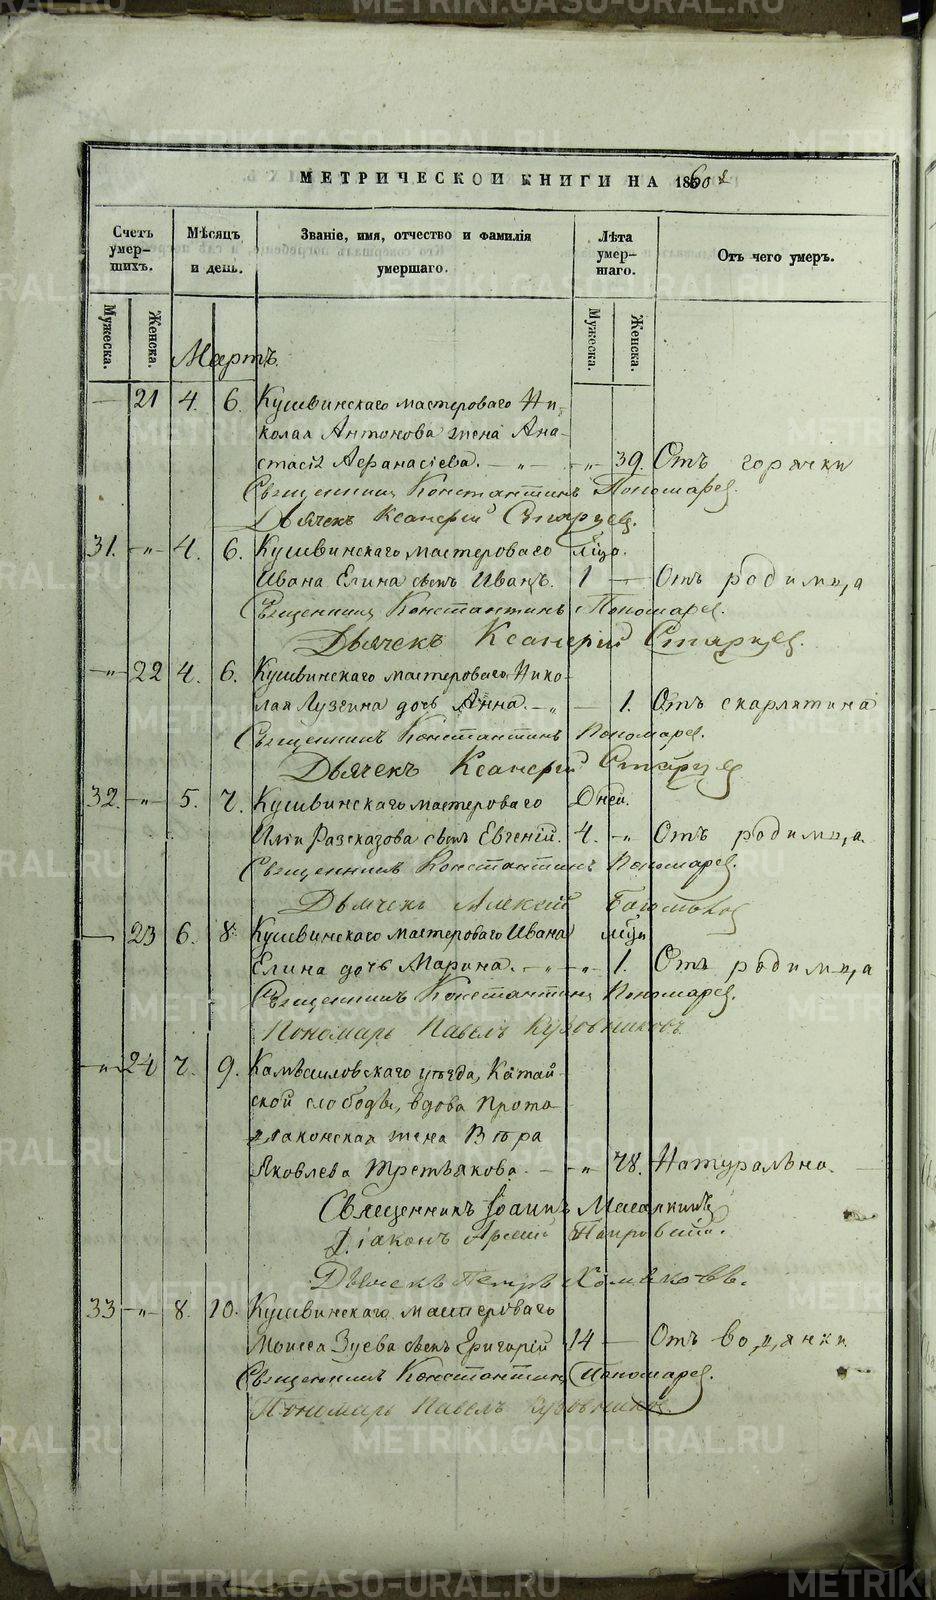 МЕТРИЧЕСКОЙ КНИГИ НА 1860й
Счетъ умер-шихъ. Мѣсяцъ и день. Званіе, имя, отчество и фамилія умершаго. Лѣта умер-шаго. Отъ чего умеръ.
Мужеска. Женска. Мужеска. Женска.
Мартъ.
— 21 4. 6. Кушвинскаго мастероваго Ни-
колая Антонова жена Ана-
стасія Афанасіева. — „ — „ 39. Отъ горячки
Священникъ Константинъ Пономарев.
Дьячекъ Ксанфрій Старцев.
31. „ 4. 6. Кушвинскаго мастероваго мѣцо.
Ивана Елина сынъ Иванъ. 1 — Отъ родимца
Священникъ Константинъ Пономарев.
Дьячекъ Ксанфрій Старцев.
„ 22 4. 6. Кушвинскаго мастероваго Нико-
лая Лузгина дочь Анна. — „ — 1. Отъ скарлятина
Священникъ Константинъ Пономарев.
Дьячекъ Ксанфрій Старцев
32. „ 5. 7. Кушвинскаго мастероваго Дней.
Ильи Разсказова сынъ Евгеній. 4. „ Отъ родимца.
Священникъ Константинъ Пономарев.
Дьячекъ Алексій
— 23 6. 8. Кушвинскаго мастероваго Ивана мѣця
Елина дочь Марина. — „ — „ 1. Отъ родимца
Священникъ Константинъ Пономарев.
Пономарь Павелъ Кузовниковъ.
„ 24 7. 9. Камышловскаго уѣзда, Катай-
ской слободы, вдова Прото-
діаконская жена Вѣра
Яковлева Третьякова. — „ 78. Натурально.
Священникъ Іоаннъ
Діаконъ
Дьячекъ Петръ Хомяковъ.
33 „ 8. 10. Кушвинскаго мастероваго
Моисея Зуева сынъ Григорій 14 — Отъ водянки.
Священникъ Константинъ Пономарев.
Пономарь Павелъ Кузовников.
METRIKI.GASO-URAL.RU